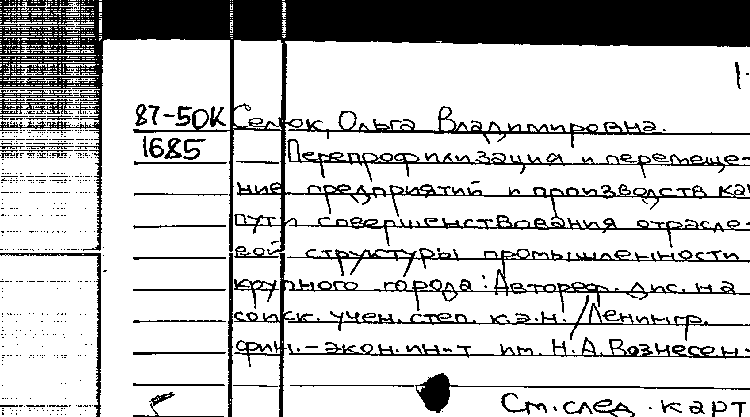 1-
87-50К Селюк, Ольга Владимировна.
1685 Перепрофилизация и перемеще-
ние предприятий и производств ка
пути совершенствования отрасле-
вой структуры промышленности
крупного города: Автореф. дис. на
соиск. учен. степ. к.э.н. / Ленингр.
фин.-экон. ин-т им. Н.А. Вознесен-
См. след. карт